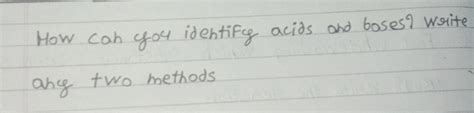 How can you identify acids and bases? write
any two methods